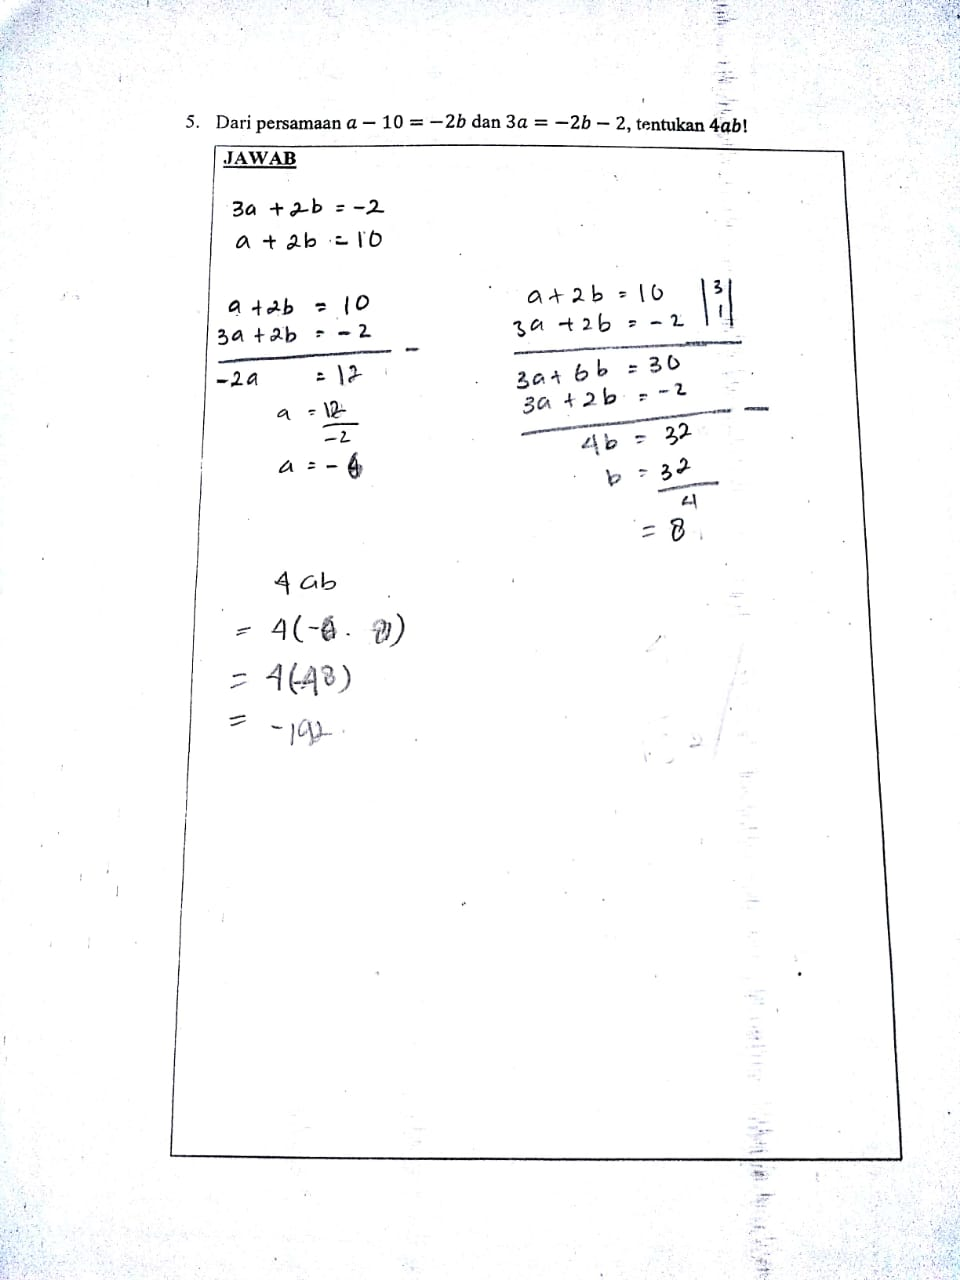 5. Dari persamaan a − 10 = −2b dan 3a = −2b − 2, tentukan 4ab!
JAWAB
3a + 2b = -2
a + 2b = 10
a + 2b = 10
3a + 2b = -2
-
-2a = 12
a = 12
-2
a = -6
a + 2b = 10 |3|
3a + 2b = -2 |1|
3a + 6b = 30
3a + 2b = -2
-
4b = 32
b = 32
4
= 8
4ab
= 4(-6 . 8)
= 4(-48)
= -192